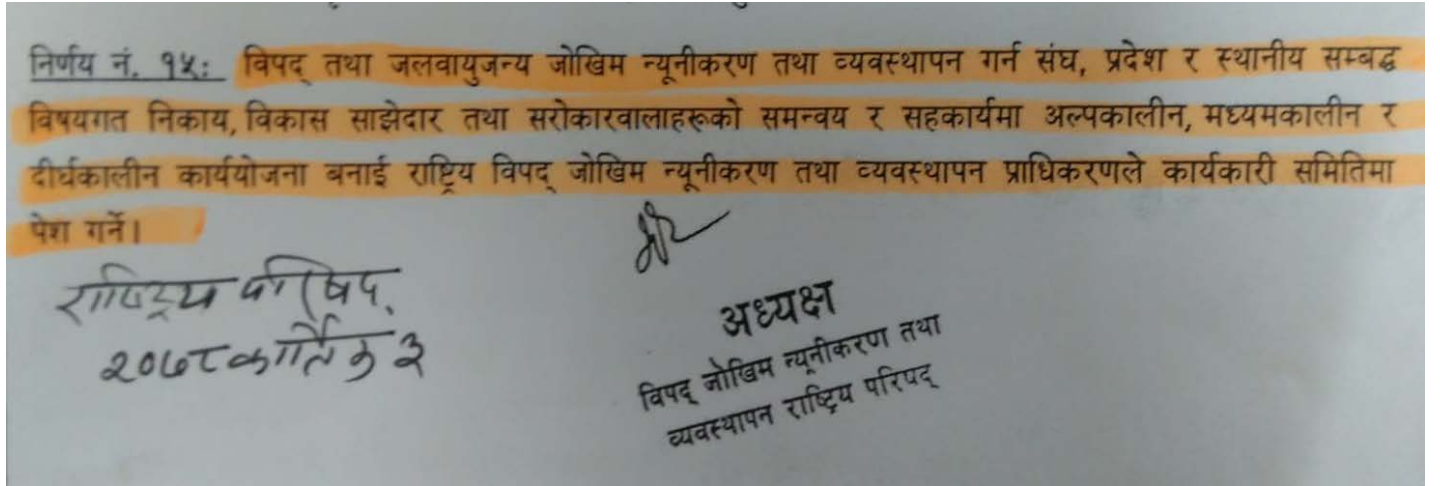 निर्णय नं. १५: विपद् तथा जलवायुजन्य जोखिम न्यूनीकरण तथा व्यवस्थापन गर्न संघ, प्रदेश र स्थानीय सम्बद्ध
विषयगत निकाय, विकास साझेदार तथा सरोकारवालाहरूको समन्वय र सहकार्यमा अल्पकालीन, मध्यमकालीन र
दीर्घकालीन कार्ययोजना बनाई राष्ट्रिय विपद् जोखिम न्यूनीकरण तथा व्यवस्थापन प्राधिकरणले कार्यकारी समितिमा
पेश गर्ने।
राष्ट्रिय परिषद्
२०७८ कार्तिक ३
अध्यक्ष
विपद् जोखिम न्यूनीकरण तथा
व्यवस्थापन राष्ट्रिय परिषद्